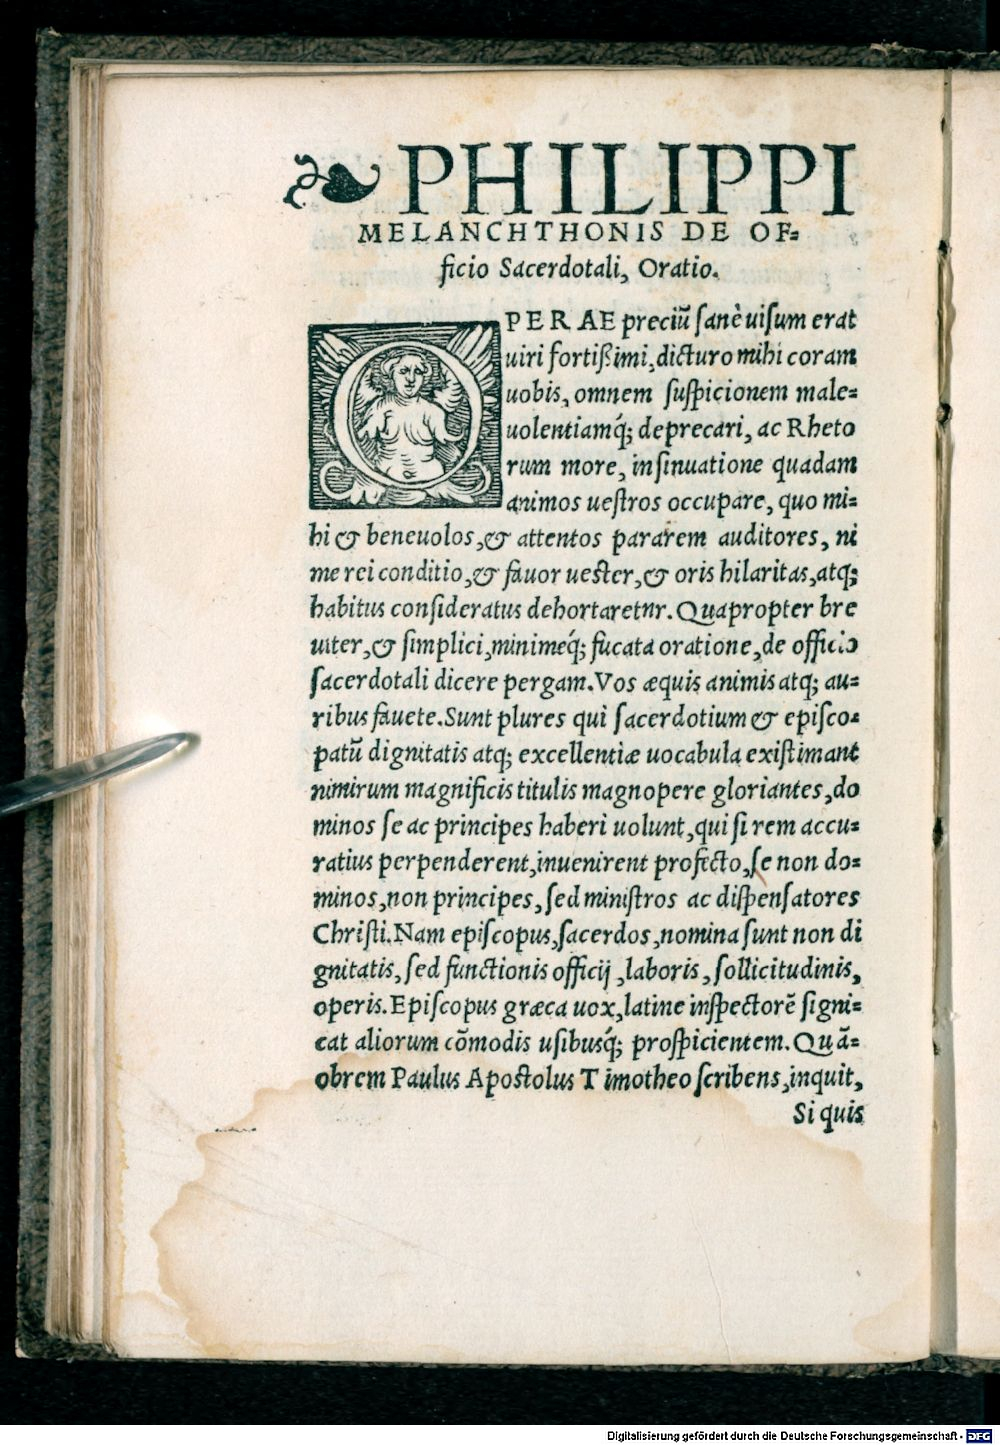 ❧ PHILIPPI
MELANCHTHONIS DE OF=
ficio Sacerdotali, Oratio.
OPERAE preciũ ſanè uiſum erat
uiri fortiſsimi, dicturo mihi coram
uobis, omnem ſuſpicionem male=
uolentiamq́; deprecari, ac Rheto
rum more, inſinuatione quadam
animos ueſtros occupare, quo mi=
hi & beneuolos, & attentos pararem auditores, ni
me rei conditio, & fauor ueſter, & oris hilaritas, atq;
habitus conſideratus dehortaretnr. Quapropter bre
uiter, & ſimplici, minimeq́; fucata oratione, de officio
ſacerdotali dicere pergam. Vos æquis animis atq; au=
ribus fauete. Sunt plures qui ſacerdotium & epiſco=
patũ dignitatis atq; excellentiæ uocabula exiſtimant
nimirum magnificis titulis magnopere gloriantes, do
minos ſe ac principes haberi uolunt, qui ſi rem accu=
ratius perpenderent, inuenirent profecto, ſe non do=
minos, non principes, ſed miniſtros ac diſpenſatores
Chriſti. Nam epiſcopus, ſacerdos, nomina ſunt non di
gnitatis, ſed functionis officij, laboris, ſollicitudinis,
operis. Epiſcopus græca uox, latine inſpectorẽ ſigni=
cat aliorum cõmodis uſibusq́; proſpicientem. Quã=
obrem Paulus Apoſtolus Timotheo ſcribens, inquit,
Si quis
Digitalisierung gefördert durch die Deutsche Forschungsgemeinschaft - DFG